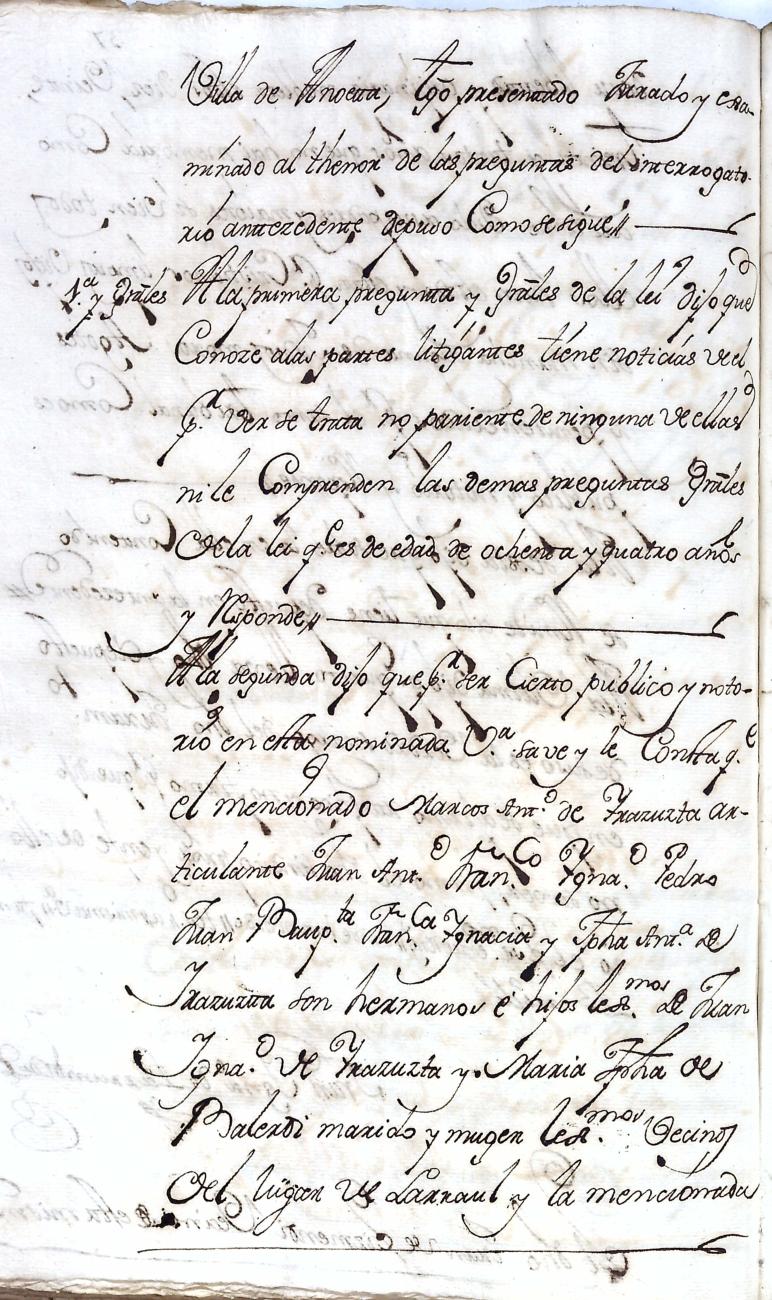 Villa de Anoetta, tgō presentado Jurado y exa-
minado al thenor de las preguntas del interrogato-
rio anttezedente depuso Como se sigue//
1.ª y Grāles A la primera pregunta y Grāles de la lei dijo que
Conoze alas partes litigantes tiene noticias de el
p.r ver se trata no pariente de ninguna de ellas
ni le Comprenden las demas preguntas Grāles
de la lei q.e es de edad de ochenta y quatro años
y Responde//
A la segunda dijo que p.r ser Cierto publico y noto-
rio en esta nominada V.ª save y le Consta q.e
el mencionado Marcos Ant.o de Yrazuzta ar-
ticulante Juan Ant.o Fran.co Ygna.o Pedro
Juan Baup.ta Fran.ca Ygnacia y Jpha Ant.a de
Yrazuzta son hermanos é hijos lex.mos de Juan
Ygna.o de Yrazuzta y Maria Jpha de
Balerdi marido y muger lex.mos Vecinos
del lugar de Larraul y la mencionada